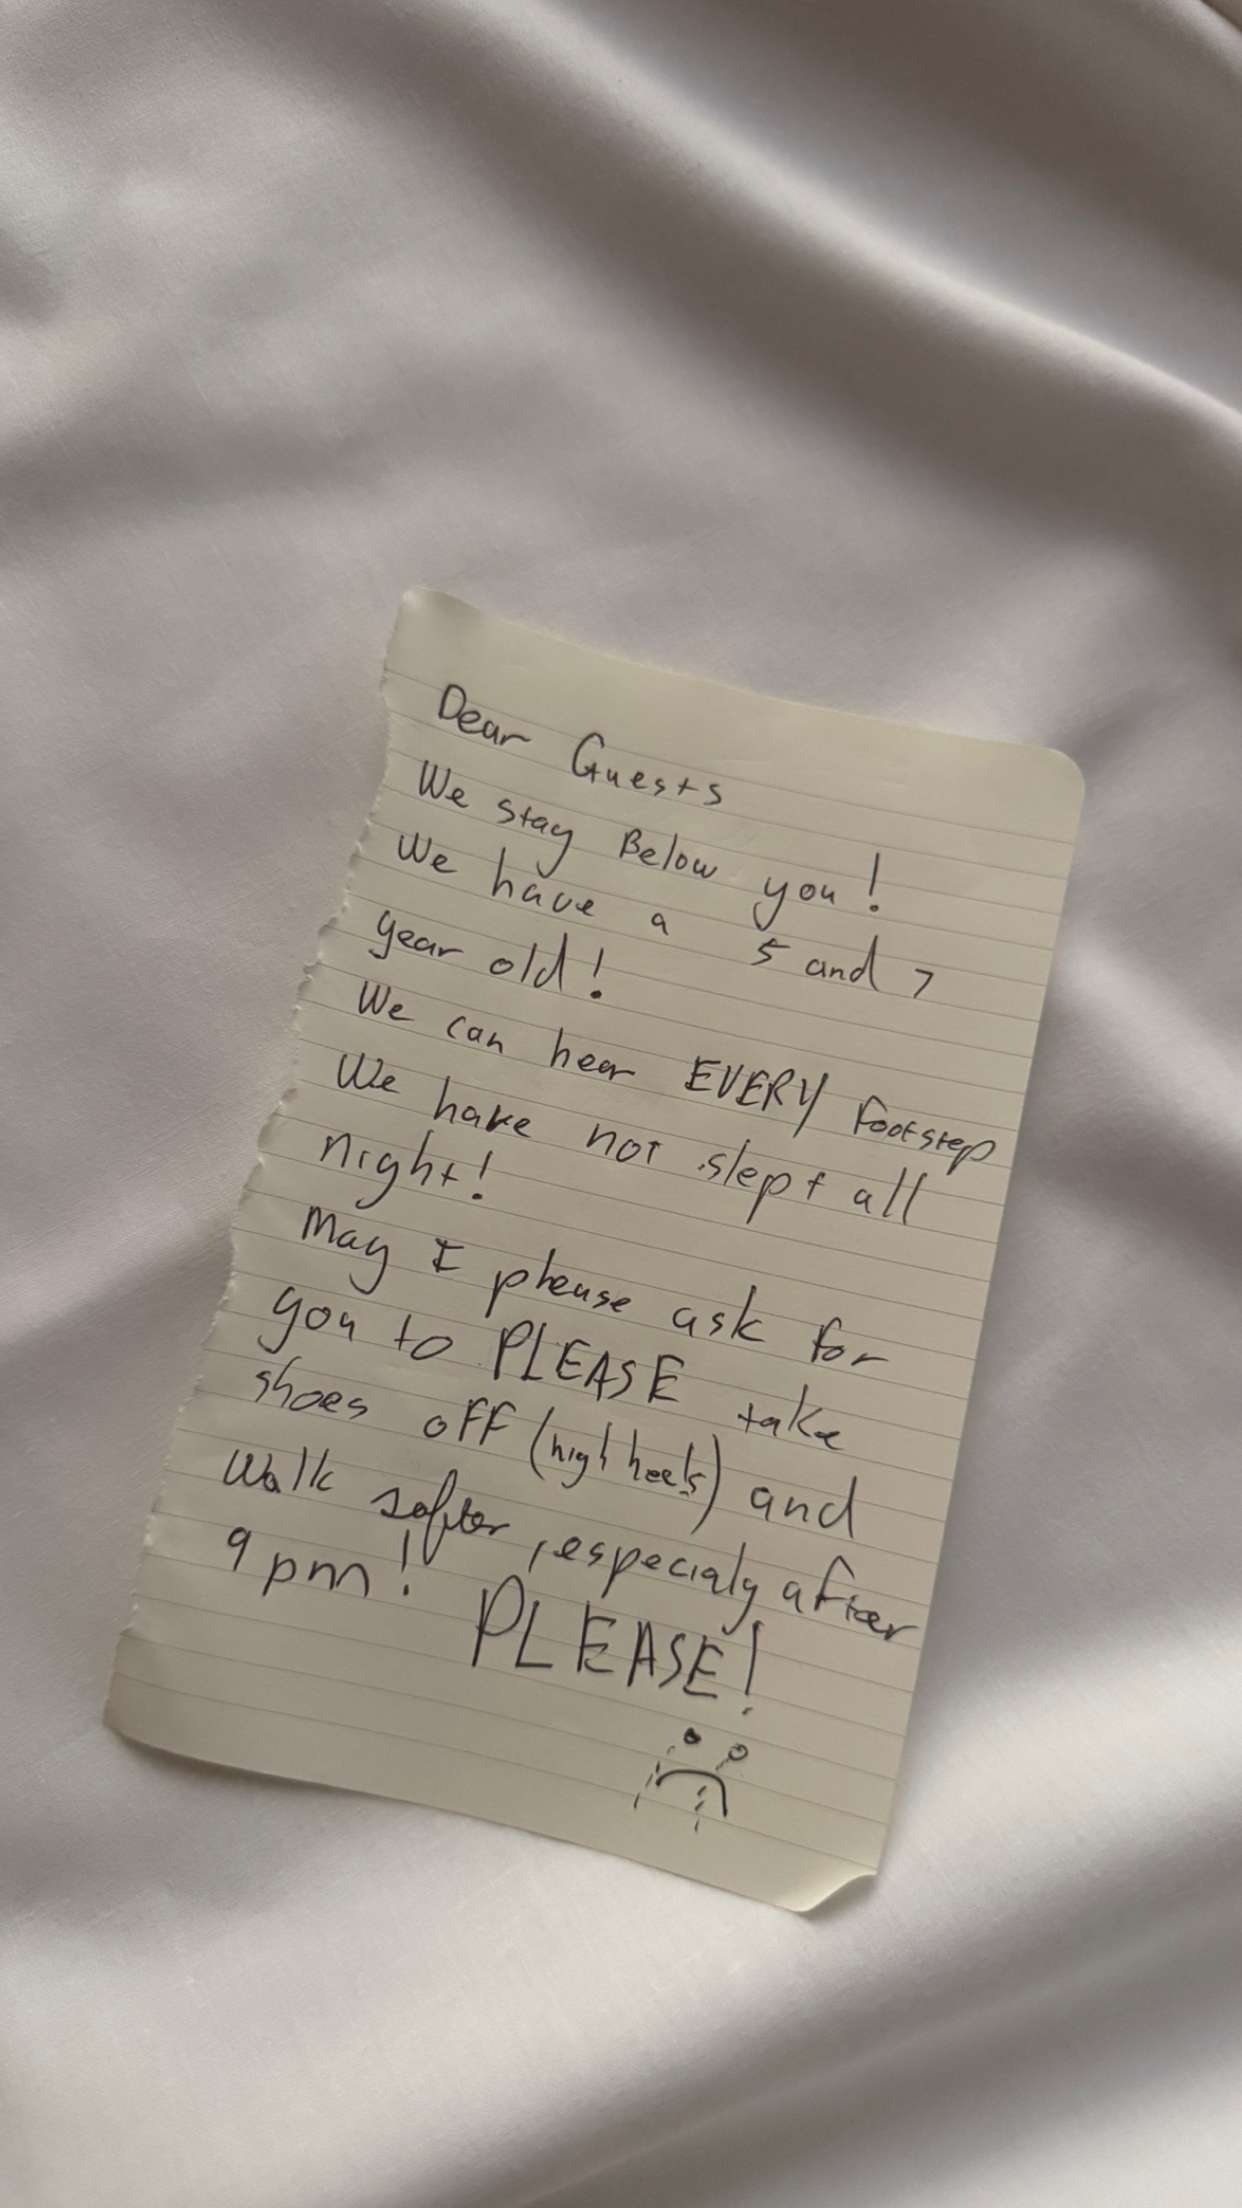 Dear Guests
We stay Below you!
We have a 5 and 7
year old!
We can hear EVERY Footstep
We have not slept all
night!
May I please ask for
you to PLEASE take
shoes off (high heels) and
Walk softer, especialy after
9 pm! PLEASE!